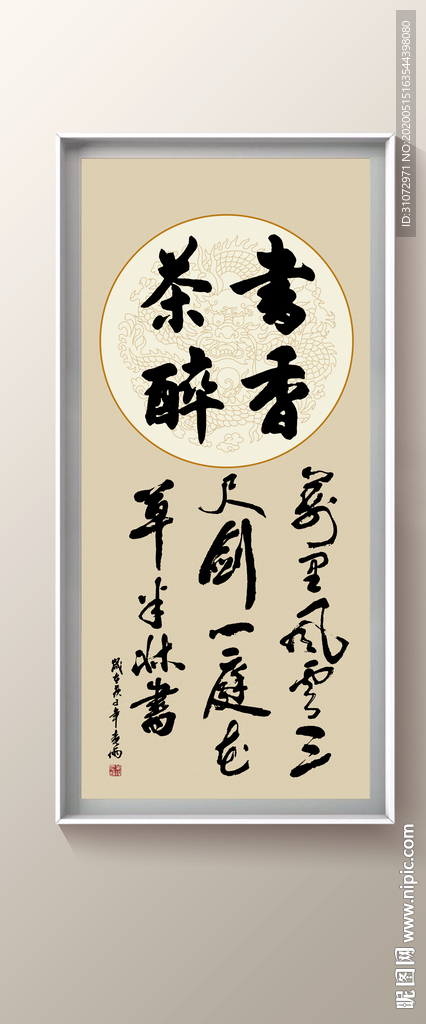 書香
茶醉
萬里風雲三
尺劍一庭花
草半牀書
歲在庚子年
ID:31072971 NO:20200515163544398080
昵图网 www.nipic.com